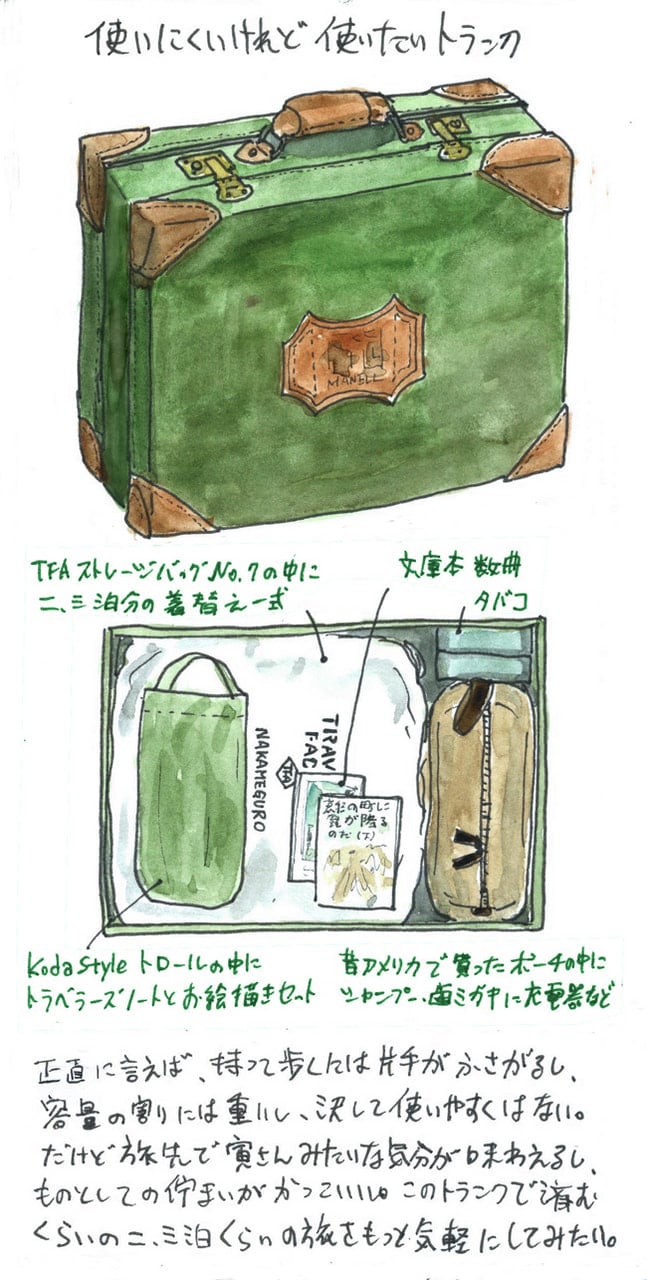 使いにくいけれど 使いたいトランク
MANELL
TFAストレージバッグNo.7の中に
二、三泊分の着替え一式
文庫本 数冊
タバコ
NAKAMEGURO
TRAV
FAC
TFA
哀愁の町に
霧が降る
のだ(下)
Koda Style トロールの中に
トラベラーズノートとお絵描きセット
昔アメリカで買ったポーチの中に
シャンプー、歯ミガキに充電器など
正直に言えば、持って歩くには片手がふさがるし、
容量の割りには重いし、決して使いやすくはない。
だけど旅先で寅さんみたいな気分が味わえるし、
ものとしての佇まいがかっこいい。このトランクで済む
くらいの二、三泊くらいの旅をもっと気軽にしてみたい。